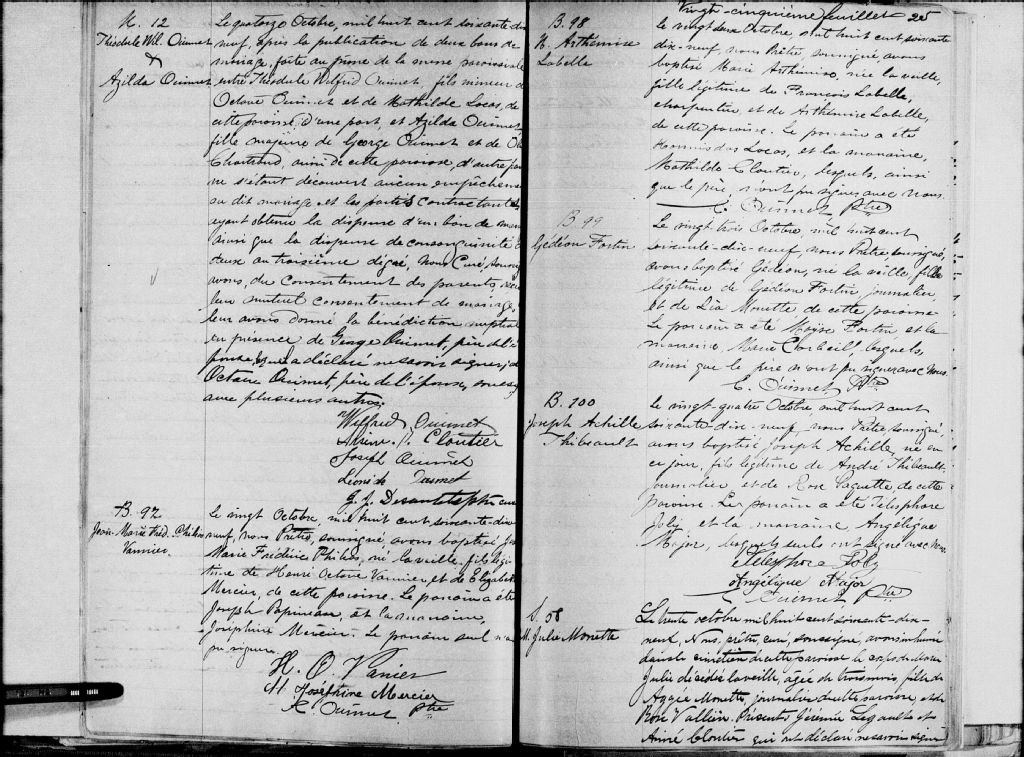 M. 12
Théodule Wil. Ouimet
&
Azilda Ouimet
Le quatorze Octobre, mil huit cent soixante dix
neuf, après la publication de deux bans de
mariage, faite au prône de la messe paroissiale
entre Théodule Wilfrid Ouimet fils mineur de
Octave Ouimet et de Mathilde Locas, de
cette paroisse, d'une part, et Azilda Ouimet
fille majeure de George Ouimet et de
Chartrand, aussi de cette paroisse, d'autre part
ne s'étant découvert aucun empêchement
au dit mariage et les parties contractantes
ayant obtenu la dispense d'un ban de
ainsi que la dispense de consanguinité
au troisième degré, Nous Curé, soussigné
avons, du Consentement des parents, reçu
leur mutuel consentement de mariage,
leur avons donné la bénédiction nuptiale
en présence de George Ouimet, père de l'é
pouse, qui a déclaré ne savoir signer, de
Octave Ouimet, père de l'époux,
avec plusieurs autres.
Wilfrid Ouimet
Cloutier
Joseph Ouimet
Ouimet
curé
B. 97
Jean-Marie Fréd. Philias
Vannier
Le vingt Octobre, mil huit cent soixante-dix
neuf, nous Prêtre, soussigné avons baptisé
Marie Frédéric Philias, né la veille, fils légi
time de Henri Octave Vannier et de Elizabeth
Mercier, de cette paroisse. Le parrain a été
Joseph Papineau, et la marraine,
Joséphine Mercier. Le parrain seul n'a
pu signer.
H. O. Vanier
M Joséphine Mercier
C. Ouimet Ptre
Vingt-cinquième feuillet 25
B. 98
M. Arthémise
Labelle
Le vingt deux Octobre, mil huit cent soixante
dix-neuf, nous Prêtre, soussigné, avons
baptisé Marie Arthémise, née la veille,
fille légitime de François Labelle,
charpentier, et de Arthémise Labelle,
de cette paroisse. Le parrain a été
Hormisdas Locas, et la marraine,
Mathilde Cloutier, lesquels, ainsi
que le père, n'ont pu signer avec nous.
C. Ouimet Ptre
B 99
Gédéon Fortin
Le vingt trois Octobre, mil huit cent
soixante-dix-neuf, nous Prêtre, soussigné,
avons baptisé Gédéon, né la veille, fils
légitime de Gédéon Fortin, journalier,
et de Lia Monette de cette paroisse
Le parrain a été Moyse Fortin et la
marraine, Marie Corbeil, lesquels,
ainsi que le père n'ont pu signer avec nous.
C. Ouimet Ptre
B. 100
Joseph Achille
Thibeault
Le vingt-quatre Octobre mil huit cent
soixante-dix-neuf, nous Prêtre soussigné,
avons baptisé Joseph Achille, né en
ce jour, fils légitime de André Thibeault
journalier et de Rose Paquette, de cette
paroisse. Le parrain a été Télesphore
Joly, et la marraine Angélique
Major, lesquels seuls ont signé avec nous
Télesphore Joly
Angélique Major
C. Ouimet Ptre
S. 58
M. Julie Monette
Le trente octobre mil huit cent soixante-dix-
neuf, Nous, prêtre, curé, soussigné, avons inhumé
dans le cimetière de cette paroisse le corps de Marie
Julie décédée la veille, agée de trois mois, fille de
Monette, journalier de cette paroisse, et de
Rose Vallière. Présents Jérémie Legault et
Aimé Cloutier qui ont déclaré ne savoir signer